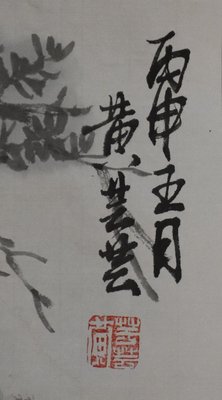 丙申五月
黄芸芸